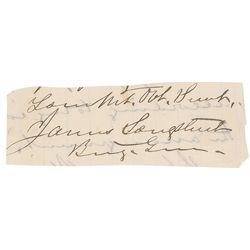 Your Mst. Obt. Servt,
James Longstreet
Brig. Gen.